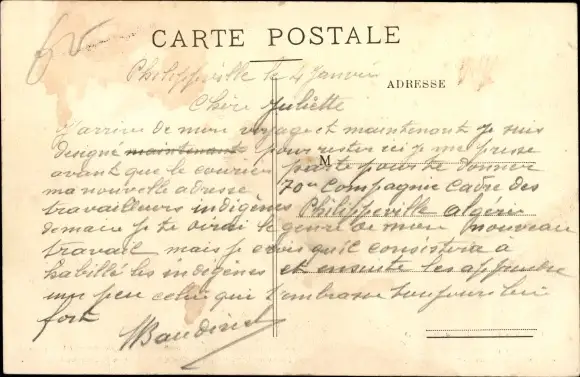 CARTE POSTALE
ADRESSE
Philippeville le 4 Janvier
Chère Juliette
J'arrive de mon voyage et maintenant je suis
designé maintenant pour rester ici je me presse
avant que le courrier parte pour te donner
M
ma nouvelle adresse 70e Compagnie Cadre des
travailleurs indigènes Philippeville Algérie
demain je te dirai le genre de mon nouveau
travail mais je crois qu'il consistera a
habillé les indigènes et ensuite les apprendre
un peu celui qui t'embrasse toujours bien
fort